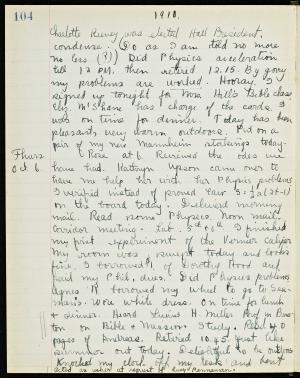 104 1910.
Charlotte Kenney was elected Hall President,
condense. (Do as I am told no more
no less (?)) Did Physics acceleration
till 12 P.M., then retired 12.15. By gory
my problems are worked. Hooray, I
signed up tonight for Mrs. Hill's Bible class.
Eliz. McShane has charge of the cards. I
was on time for dinner. Today has been
pleasant, very warm, outdoors. Put on a
pair of my new stockings today.
Thurs. Rose at 6. Reviewed the odes we
Oct 6. have had. Kathryn Upson came over to
have me help her with her Physics problems
I verified instead of proved law S=½a(2t-1)
on the board today. Delivered morning
mail. Read some Physics. Noon mail.
Corridor meeting. Lab. 5th & 6th I finished
my first experiment of the Vernier caliper
My room was swept today and looks
fine. I borrowed of Dorothy Hood and
paid my C.H. dues. Did Physics problems
Agnes R. borrowed my wheel to go to Sea-
man's. Wore white dress. On time for lunch
& dinner. Heard Lucius H. Miller Prof. in Prince
ton on Bible & Mission Study. Read 40
pages of Andreas. Retired 10.45 just like
summer out today. Delightful to be outdoors
Knocked my clock off my desk and bent
acted as usher at request of